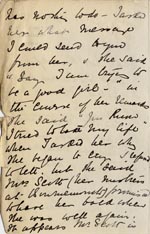 has nothing to do - I asked
her what message
I could send to you
from her, & she said
"Say I am trying to
be a good girl" - in
the course of her
she said "you know
I tried to take my life"
when I asked her why
she began to cry. I
to let, but she said
Mrs Scott (her mother's
at
to take her back when
she was well again.
It appears Mrs Scott is